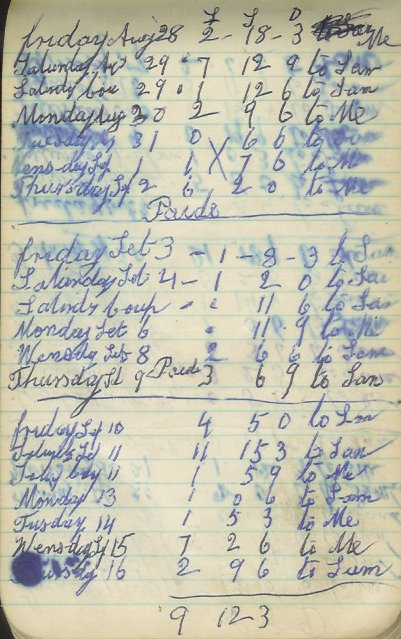 £ S D
friday Aug 28 2 - 18 - 3 to Me
Saturday Ag 29 . 7 12 9 to Sam
29 . 1 12 6 to Sam
Monday Aug 30 2 9 6 to Me
Tuesday 31 0 6 6 to
Wensday 1 1 7 6 to Me
Thursday 2 6 2 0 to Me
Paide
friday Set 3 - 1 - 8 - 3 to
Saturday Set 4 - 1 2 0 to
11 6 to Sam
Monday Set 6 . 11 . 9 to Me
Wensdy Set 8 2 6 6 to Sam
Thursday St 9 Paide 3 6 9 to Sam
friday Set 10 4 5 0 to Sam
Set 11 11 15 3 to Sam
11 1 5 9 to Me
Monday 13 1 0 6 to Sam
Tusday 14 1 5 3 to Me
Wensday 15 7 2 6 to Me
16 2 9 6 to Sam
9 12 3